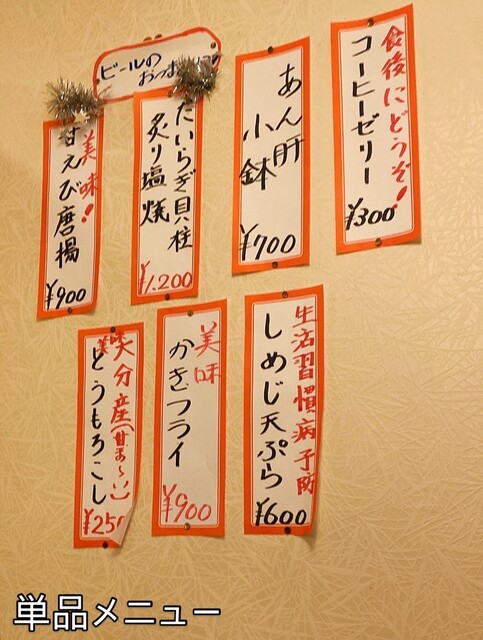 食後にどうぞ!
コーヒーゼリー
¥300
あん肝
小鉢
¥700
ビールの
おつまみに
たいらぎ貝柱
炙り塩焼
¥1,200
美味!
甘えび唐揚
¥900
生活習慣病予防
しめじ天ぷら
¥600
美味
かきフライ
¥900
大分産(甘ぁ〜い)
とうもろこし
¥250
単品メニュー